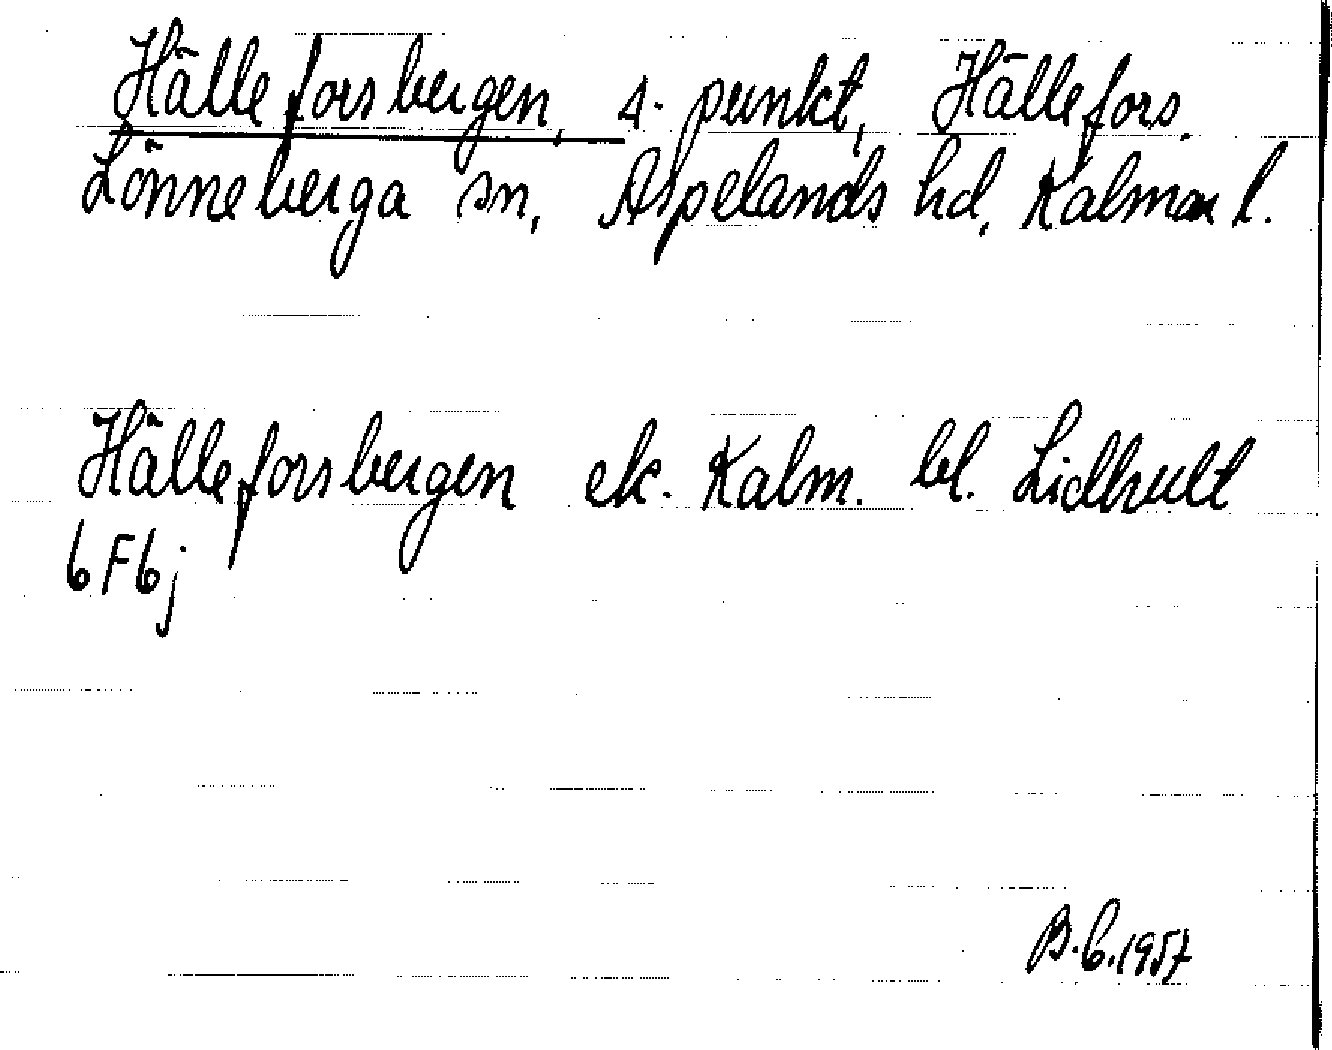 Hälleforsbergen, s. punkt, Hällefors.
Lönneberga sn, Aspelands hd, Kalmar l.
Hälleforsbergen ek. Kalm. bl. Lidhult
6F6j
B.C.1957